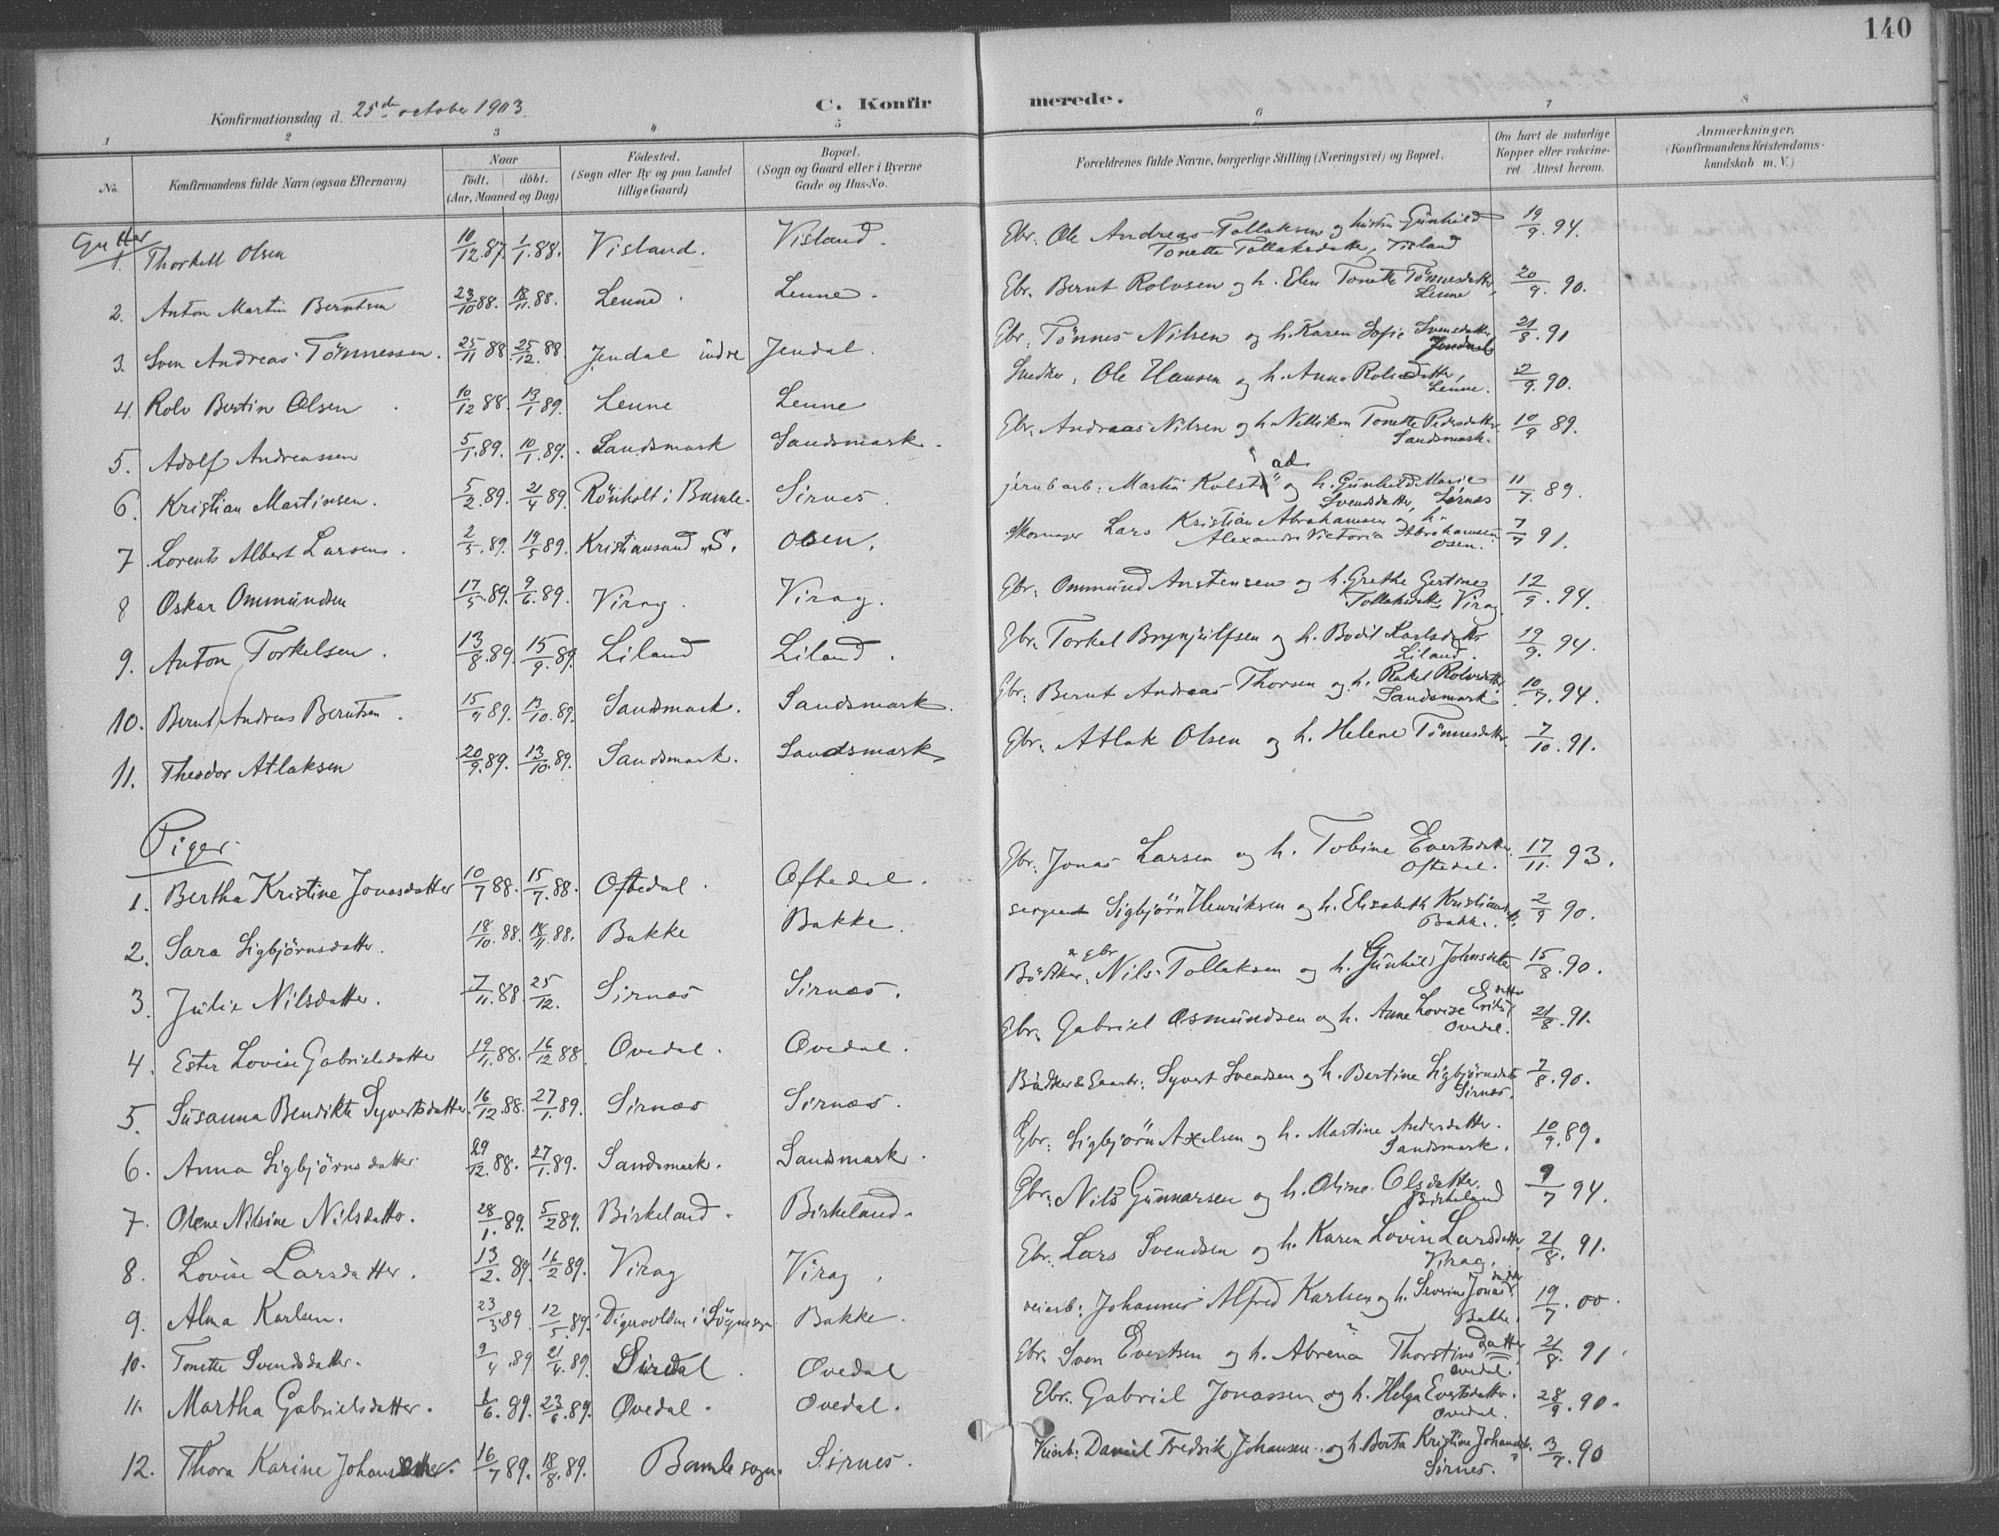 140
Konfirmationsdag d. 25de october 1903. C. Konfirmerede.
1 2 3 4 5 6 7 8
No. Konfirmandens fulde Navn (ogsaa Efternavn) Naar födt. döbt. (Aar, Maaned og Dag) Födested. (Sogn eller By og paa Landet tillige Gaard) Bopæl. (Sogn og Gaard eller i Byerne Gade og Hus-No. Forældrenes fulde Navne, borgerlige Stilling (Næringsvei) og Bopæl. Om havt de naturlige Kopper eller vakcineret. Attest herom. Anmærkninger. (Konfirmandens Kristendomskundskab m. V.)
Gutter
1. Thorkell Olsen 10/12.87. 1/1.88. Visland. Visland. Gbr. Ole Andreas Tollaksen og hustru Gunhild Tonette Tollaksdatter, Visland 19/9.94.
2. Anton Martin Berntsen 23/10 88. 18/11.88. Lenne. Lenne. Gbr. Bernt Rolvsen og h. Elen Tonette Tönnesdatter, Lenne 20/9.90.
3. Sven Andreas Tönnessen. 25/11 88. 25/12.88 Jendal indre Jendal. Gbr. Tönnes Nilsen og h. Karen Sofie Svensdatter Jendal 21/8.91
4. Rolv Bertin Olsen 10/12 88. 13/1 89. Lenne Lenne Snedker, Ole Hansen og h. Anna Rolvsdatter, Lenne. 2/9.90.
5. Adolf Andreassen 5/1.89. 10/1.89. Sandsmark Sandsmark. Gbr. Andreas Nilsen og h. Nellikea Tonette Pedersdatter Sandsmark. 10/9 89.
6. Kristian Martinsen. 5/2.89. 21/4 89. Rönholt i Bamle. Sirnes. jernb arb: Martin Kolstad og h. Gunhild Marie Svendsdatter, Sirnes 11/7.89.
7 Lorents Albert Larsen. 2/5.89. 19/5 89. Kristiansand S. Osen. Skomager Lars Kristian Abrahamsen og h. Alexandra Victoria Abrahamsen Osen. 7/7 91.
8 Oskar Ommundsen 17/5.89. 9/6.89. Virag. Virag. Gbr. Ommund Anstensen og h. Grethe Gertine Tollaksdatter Virag. 12/9.94.
9. Anton Torkelsen. 13/8.89. 15/9.89. Liland Liland. Gbr. Torkel Brynjulfsen og h. Bodil Karlsdatter Liland. 19/9.94.
10. Bernt Andreas Berntsen. 15/9 89. 13/10.89. Sandsmark. Sandsmark. Gbr. Bernt Andreas Thorsen og h. Rakel Rolvsdatter Sandsmark. 10/7.94.
11. Theodor Atlaksen 20/9.89. 13/10.89. Sandsmark. Sandsmark Gbr. Atlak Olsen og h. Helene Tönnesdatter. 7/10.91.
Piger.
1. Bertha Kristine Jonasdatter 10/7 88. 15/7.88. Oftedal. Oftedal. Gbr. Jonas Larsen og h. Tobine Evertsdatter. Oftedal. 17/11.93.
2. Sara Sigbjörnsdatter. 18/10.88. 18/11.88. Bakke Bakke. sergeant Sigbjörn Henriksen og h. Elisabeth Kristians Bakke. 2/9 90.
3. Julie Nilsdatter. 7/11.88 25/12. Sirnæs Sirnæs. Bödker & gbr. Nils Tollaksen og h. Gunhild Johnsdatter 15/8.90.
4. Ester Lovise Gabrielsdatter 19/11.88. 16/12 88 Ovedal. Ovedal. Gbr. Gabriel Osmundsen og h. Anne Lovise Eriksdatter Ovedal. 21/8.91.
5. Susanna Bendikte Syvertsdatter. 16/12.88. 27/1.89. Sirnæs Sirnæs. Bödker & Gaardbr. Syvert Svendsen og h. Bertine Sigbjörnsdatter Sirnes. 7/8.90.
6. Anna Sigbjörnsdatter. 29/12.88. 27/1.89. Sandsmark. Sandsmark. Gbr. Sigbjörn Axelsen og h. Martine Andersdatter. Sandsmark. 10/9.89.
7. Olene Nilsine Nilsdatter. 28/1.89. 5/2 89. Birkeland. Birkeland. Gbr. Nils Gunnarsen og h. Oline Olsdatter. Birkeland 9/7 94.
8. Lovise Larsdatter. 13/2.89. 16/2 89. Virag Virag. Gbr. Lars Svendsen og h. Karen Lovise Larsdatter Virag. 21/8.91.
9. Alma Karlsen. 23/3.89 12/5.89. i Sögne sogn Bakke. veiarb. Johannes Alfred Karlsen og h. Severine Jonasdatter Bakke. 19/7.00.
10. Tonette Svendsdatter. 2/4.89 21/4.89. Sirdal. Ovedal Gbr. Sven Evertsen og h. Abrena Thorstinsdatter Ovedal. 21/8.91.
11. Martha Gabrielsdatter. 1/6.89. 23/6.89. Ovedal. Ovedal. Gbr. Gabriel Jonassen og h. Helga Evertsdatter. Ovedal. 28/9.90.
12. Thora Karine Johansdatter. 16/7 89. 18/8.89. Bamle sogn. Sirnes. Veiarb. Daniel Fredrik Johansen og h. Berta Kristine Johansdt. Sirnes. 3/7.90